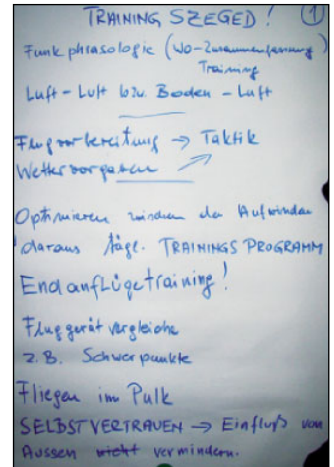 TRAINING SZEGED! 1
Funkphrasologie (Wo-Zusammenfassung)
Training
Luft-Luft bzw. Boden-Luft
Flugvorbereitung → Taktik
Wettervorgaben
Optimieren zwischen den Aufwinden
daraus tägl. TRAININGSPROGRAMM
Endanflügetraining!
Fluggerät vergleiche
z.B. Schwerpunkte
Fliegen im Pulk
SELBSTVERTRAUEN → Einfluß von
Aussen nicht vermindern.